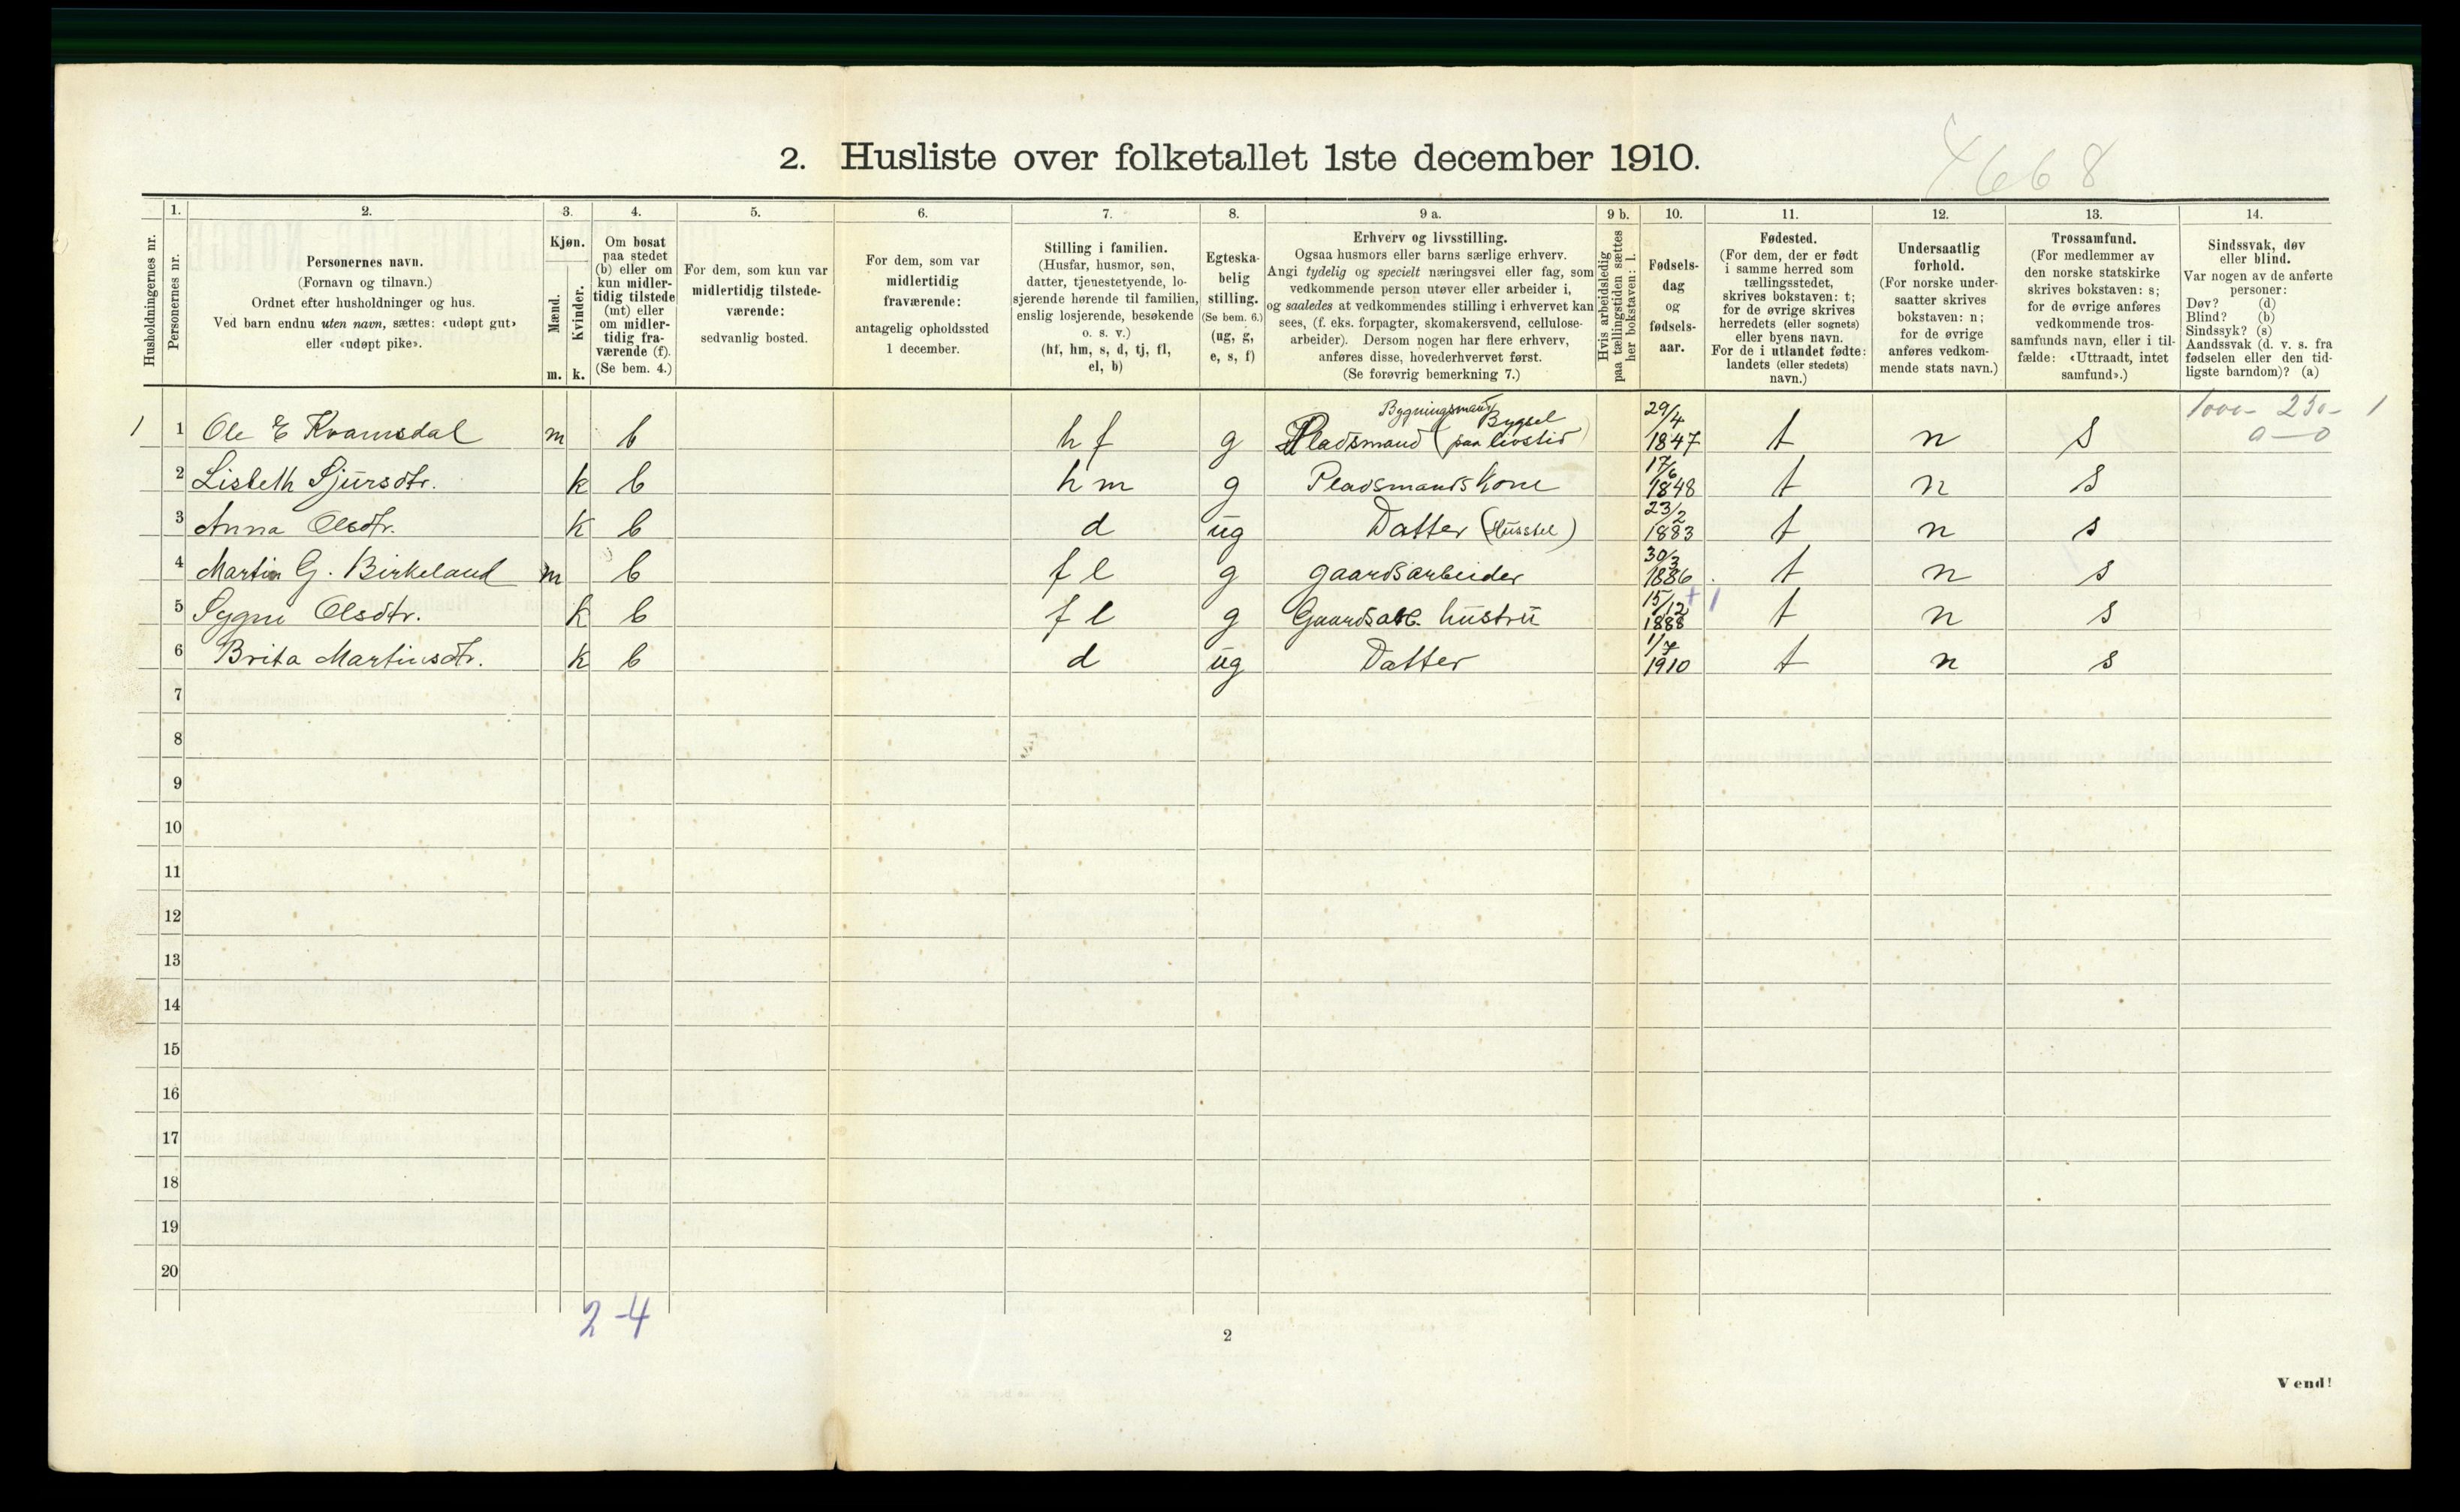 4668
2. Husliste over folketallet 1ste december 1910.
Husholdningernes nr.
1.
Personernes nr.
2.
Personernes navn.
(Fornavn og tilnavn.)
Ordnet efter husholdninger og hus.
Ved barn endnu uten navn, sættes: «udøpt gut»
eller «udøpt pike».
3.
Kjøn.
Mænd.
Kvinder.
m. k.
4.
Om bosat
paa stedet
(b) eller om
kun midler-
tidig tilstede
(mt) eller
om midler-
tidig fra-
værende (f).
(Se bem. 4.)
5.
For dem, som kun var
midlertidig tilstede-
værende:
sedvanlig bosted.
6.
For dem, som var
midlertidig
fraværende:
antagelig opholdssted
1 december.
7.
Stilling i familien.
(Husfar, husmor, søn,
datter, tjenestetyende, lo-
sjerende hørende til familien,
enslig losjerende, besøkende
o. s. v.)
(hf, hm, s, d, tj, fl,
el, b)
8.
Egteska-
belig
stilling.
(Se bem. 6.)
(ug, g,
e, s, f)
9 a.
Erhverv og livsstilling.
Ogsaa husmors eller barns særlige erhverv.
Angi tydelig og specielt næringsvei eller fag, som
vedkommende person utøver eller arbeider i,
og saaledes at vedkommendes stilling i erhvervet kan
sees, (f. eks. forpagter, skomakersvend, cellulose-
arbeider). Dersom nogen har flere erhverv,
anføres disse, hovederhvervet først.
(Se forøvrig bemerkning 7.)
9 b.
Hvis arbeidsledig
paa tællingstiden sættes
her bokstaven: l.
10.
Fødsels-
dag
og
fødsels-
aar.
11.
Fødested.
(For dem, der er født
i samme herred som
tællingsstedet,
skrives bokstaven: t;
for de øvrige skrives
herredets (eller sognets)
eller byens navn.
For de i utlandet fødte:
landets (eller stedets)
navn.)
12.
Undersaatlig
forhold.
(For norske under-
saatter skrives
bokstaven: n;
for de øvrige
anføres vedkom-
mende stats navn.)
13.
Trossamfund.
(For medlemmer av
den norske statskirke
skrives bokstaven: s;
for de øvrige anføres
vedkommende tros-
samfunds navn, eller i til-
fælde: «Uttraadt, intet
samfund».)
14.
Sindssvak, døv
eller blind.
Var nogen av de anførte
personer:
Døv? (d)
Blind? (b)
Sindssyk? (s)
Aandssvak (d. v. s. fra
fødselen eller den tid-
ligste barndom)? (a)
1 1 Ole E Kvamsdal m b h f g Pladsmand (Bygsel paa livstid) 29/4 1847 t n s 1000 - 250 - 1
Bygningsmand
0 — 0
2 Lisbeth Sjursdtr. k b h m g Pladsmands kone 17/6 1848 t n s
3 Anna Olsdtr. k b d ug Datter (Husstel) 23/2 1883 t n s
4 Martin G. Birkeland m b f l g gaardsarbeider 30/3 1886 t n s
5 Sygni Olsdtr. k b f l g Gaardsarb. hustru 15/12 1888 t n s
6 Brita Martinsdtr. k b d ug Datter 1/7 1910 t n s
7
8
9
10
11
12
13
14
15
16
17
18
19
20
2-4
2
Vend!